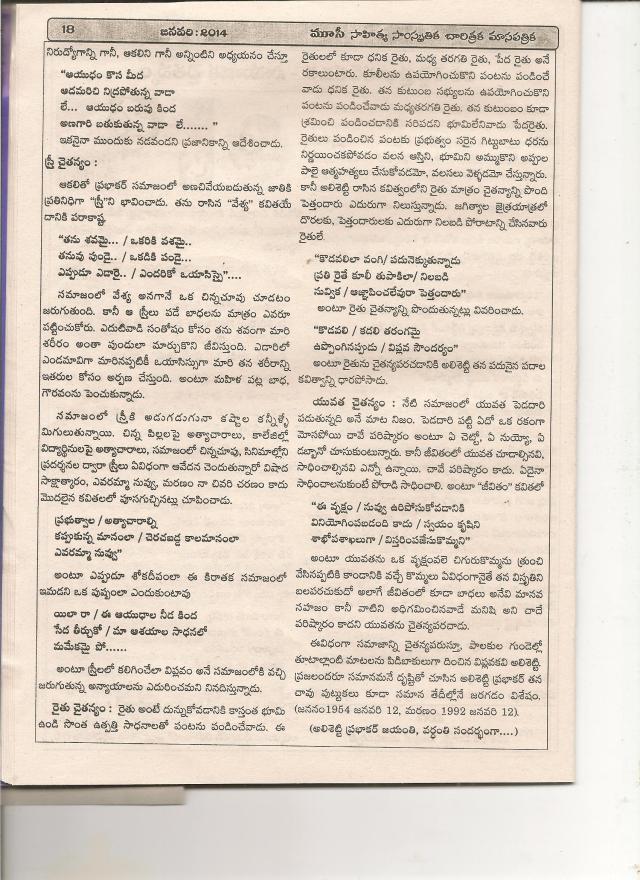 18 జనవరి: 2014 మూసీ సాహిత్య సాంస్కృతిక చారిత్రక మాసపత్రిక
నిరుద్యోగాన్ని గానీ, ఆకలిని గానీ అన్నింటిని అధ్యయనం చేస్తూ
"ఆయుధం కొన మీద
ఆదమరిచి నిద్రపోతున్న వాడా
లే... ఆయుధం బరువు కింద
అణగారి బతుకుతున్న వాడా లే....... "
ఇకనైనా ముందుకు నడవండని ప్రజానికాన్ని ఆదేశించాడు.
స్త్రీ చైతన్యం :
ఆకలితో ప్రభాకర్ సమాజంలో అణచివేయబడుతున్న జాతికి
ప్రతినిధిగా "స్త్రీ"ని భావించాడు. తను రాసిన "వేశ్య" కవితయే
దానికి పరాకాష్ట.
"తను శవమై... / ఒకరికి వశమై..
తనువు పుండై.. / ఒకడికి పండై...
ఎప్పుడూ ఎడారై.. / ఎందరికో ఒయాసిస్సై"....
సమాజంలో వేశ్య అనగానే ఒక చిన్నచూపు చూడటం
జరుగుతుంది. కానీ ఆ స్త్రీలు పడే బాధలను మాత్రం ఎవరూ
పట్టించుకోరు. ఎదుటివాడి సంతోషం కోసం తను శవంగా మారి
శరీరం అంతా పుండులా మార్చుకొని జీవిస్తుంది. ఎడారిలో
ఎండమావిగా మారినప్పటికీ ఒయాసిస్సుగా మారి తన శరీరాన్ని
ఇతరుల కోసం అర్పణ చేస్తుంది. అంటూ మహిళ పట్ల బాధ,
గౌరవంను పెంచుకున్నాడు.
సమాజంలో స్త్రీకి అడుగడుగునా కష్టాల కన్నీళ్ళే
మిగులుతున్నాయి. చిన్న పిల్లలపై అత్యాచారాలు, కాలేజిల్లో
విద్యార్థినులపై అత్యాచారాలు, సమాజంలో చిన్నచూపు, సినిమాల్లోని
ప్రదర్శనల ద్వారా స్త్రీలు ఏవిధంగా ఆవేదన చెందుతున్నారో విషాద
సాక్షాత్కారం, ఎవరమ్మా నువ్వు, మరణం నా చివరి చరణం కాదు
మొదలైన కవితలలో పూసగుచ్చినట్లు చూపించాడు.
ప్రభుత్వాల / అత్యాచారాల్ని
కప్పుకున్న మానంలా / చెరచబడ్డ కాలమానంలా
ఎవరమ్మా నువ్వు"
అంటూ ఎప్పుడూ శోకదీపంలా ఈ కిరాతక సమాజంలో
ఇమడని ఒక పుష్పంలా ఎందుకుంటావు
యిలా రా / ఈ ఆయుధాల నీడ కింద
సేద తీర్చుకో / మా ఆశయాల సాధనలో
మమేకమై పో......
అంటూ స్త్రీలలో కలిగించేలా విప్లవం అనే సమాజంలోకి వచ్చి
జరుగుతున్న అన్యాయాలను ఎదురించమని నినదిస్తున్నాడు.
రైతు చైతన్యం : రైతు అంటే దున్నుకోవడానికి కాస్తంత భూమి
ఉండి సొంత ఉత్పత్తి సాధనాలతో పంటను పండించేవాడు. ఈ
రైతులలో కూడా ధనిక రైతు, మధ్య తరగతి రైతు, పేద రైతు అనే
రకాలుంటారు. కూలీలను ఉపయోగించుకొని పంటను పండించే
వాడు ధనిక రైతు. తన కుటుంబ సభ్యులను ఉపయోగించుకొని
పంటను పండించేవాడు మధ్యతరగతి రైతు. తన కుటుంబం కూడా
శ్రమించి పండించడానికి సరిపడని భూమిలేనివాడు పేదరైతు.
రైతులు పండించిన పంటకు ప్రభుత్వం సరైన గిట్టుబాటు ధరను
నిర్ణయించకపోవడం వలన ఆస్తిని, భూమిని అమ్ముకొని అప్పుల
పాలై ఆత్మహత్యలు చేసుకోవడమో, వలసలు వెళ్ళడమో చేస్తున్నారు.
కానీ అలిశెట్టి రాసిన కవిత్వంలోని రైతు మాత్రం చైతన్యాన్ని పొంది
పెత్తందారు ఎదురుగా నిలుస్తున్నాడు. జగిత్యాల జైత్రయాత్రలో
దొరలకు, పెత్తందారులకు ఎదురుగా నిలబడి పోరాటాన్ని చేసినవారు
రైతులే.
"కొడవలిలా వంగి/ పదునెక్కుతున్నాడు
ప్రతి రైతే కూలీ తుపాకిలా/ నిలబడి
నువ్విక / ఆజ్ఞాపించలేవురా పెత్తందారు"
అంటూ రైతు చైతన్యాన్ని పొందుతున్నట్లు వివరించాడు.
"కొడవలి / కడలి తరంగమై
ఉప్పొంగినప్పుడు / విప్లవ సౌందర్యం"
అంటూ రైతును చైతన్యపరచడానికి అలిశెట్టి తన పదునైన పదాల
కవిత్వాన్ని ధారపోసాడు.
యువత చైతన్యం : నేటి సమాజంలో యువత పెడదారి
పడుతున్నది అనే మాట నిజం. పెడదారి పట్టి ఏదో ఒక రకంగా
మోసపోయి చావే పరిష్కారం అంటూ ఏ చెట్టో, ఏ నుయ్యో, ఏ
డబ్బానో చూసుకుంటున్నారు. కానీ జీవితంలో యువత చూడాల్సినవి,
సాధించాల్సినవి ఎన్నో ఉన్నాయి. చావే పరిష్కారం కాదు. ఏదైనా
సాధించాలనుకుంటే పోరాడి సాధించాలి. అంటూ "జీవితం" కవితలో
"ఈ వృక్షం / నువ్వు ఉరిపోసుకోవడానికి
వినియోగింపబడంది కాదు / స్వయం కృషిని
శాఖోపశాఖలుగా / విస్తరింపజేసుకొమ్మని"
అంటూ యువతను ఒక వృక్షంవలె చిగురుకొమ్మను త్రుంచి
వేసినప్పటికి కాండానికి వచ్చే కొమ్మలు ఏవిధంగానైతే తన విస్తృతిని
బలపరచుకుదో అలాగే జీవితంలో కూడా బాధలు అనేవి మానవ
సహజం కానీ వాటిని అధిగమించినవాడే మనిషి అని చాదే
పరిష్కారం కాదని యువతను చైతన్యపరచాడు.
ఈవిధంగా సమాజాన్ని చైతన్యపరుస్తూ, పాలకుల గుండెల్లో
తూటాల్లాంటి మాటలను పిడిబాకులుగా దించిన విప్లవకవి అలిశెట్టి.
ప్రజలందరూ సమానమనే దృష్టితో చూసిన అలిశెట్టి ప్రభాకర్ తన
చావు పుట్టుకలు కూడా సమాన తేదీల్లోనే జరగడం విశేషం.
(జననం1954 జనవరి 12, మరణం 1992 జనవరి 12).
(అలిశెట్టి ప్రభాకర్ జయంతి, వర్ధంతి సందర్భంగా....)